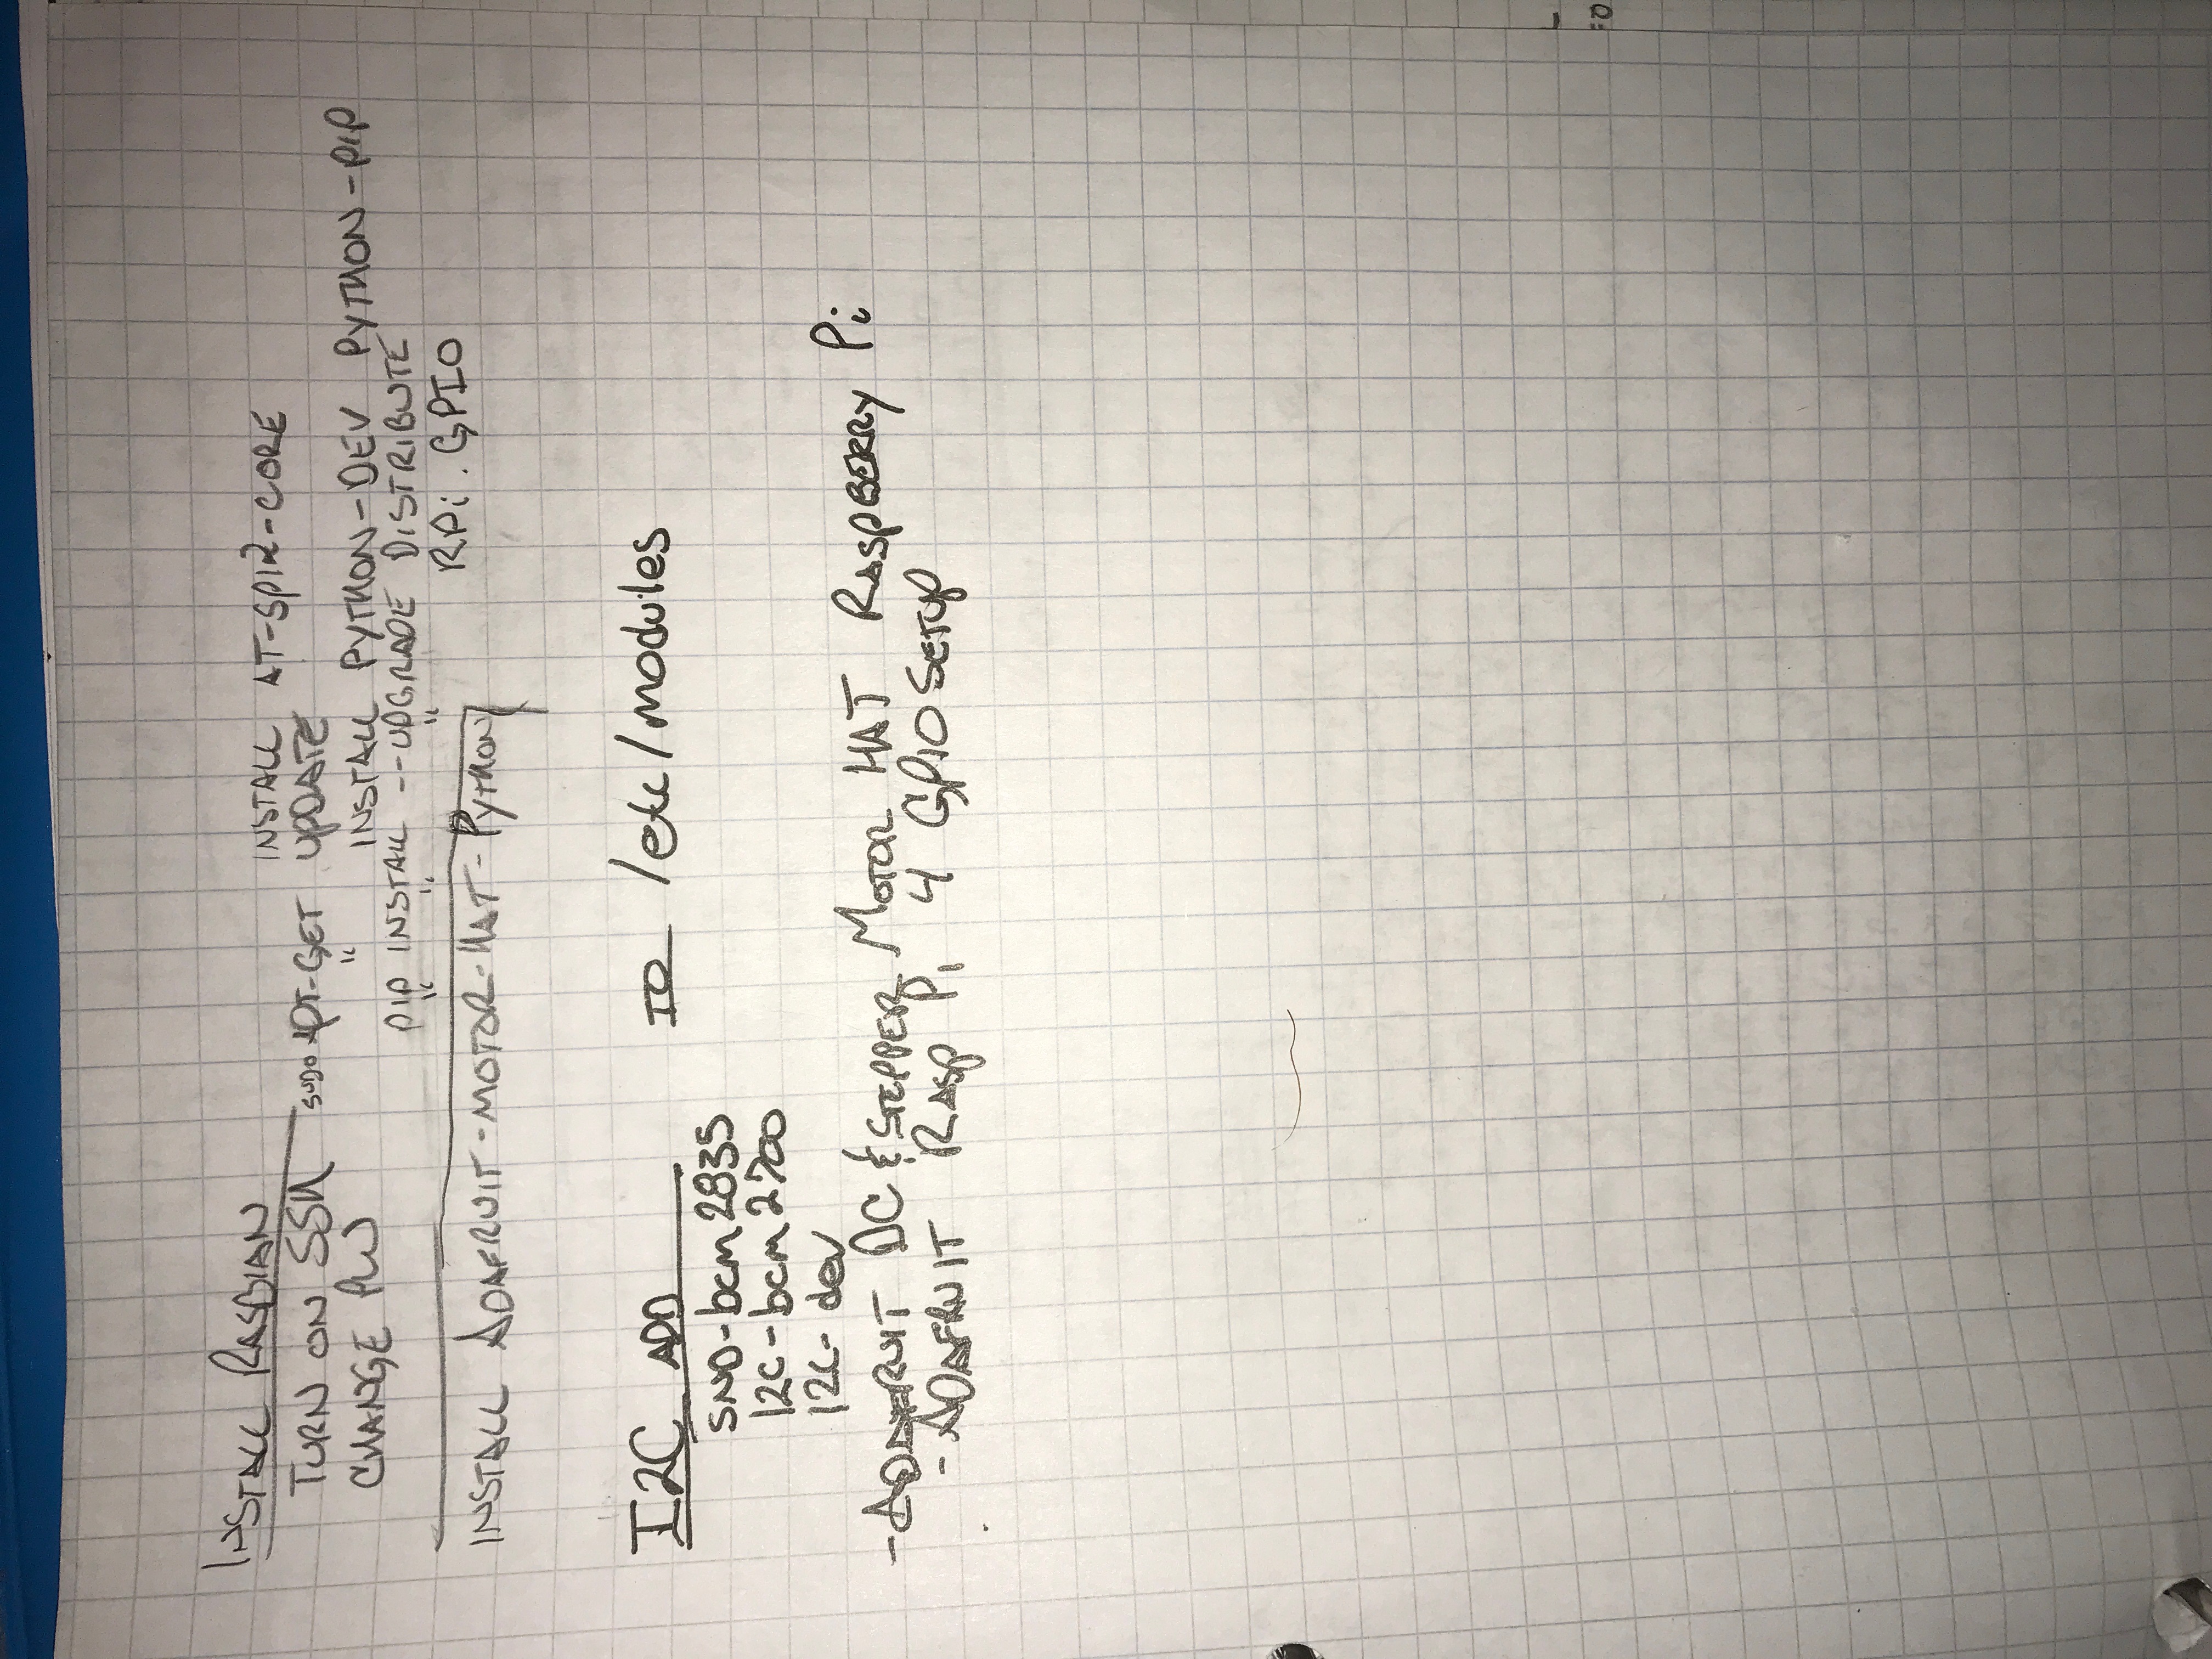 INSTALL RASBIAN
INSTALL AT-SPI2-CORE
TURN ON SSH SUDO APT-GET UPDATE
CHANGE PW " INSTALL PYTHON-DEV PYTHON-PIP
PIP INSTALL --UPGRADE DISTRIBUTE
" " " RPi.GPIO
INSTALL ADAFRUIT-MOTOR-HAT-PYTHON
I2C ADD /etc/modules
SND-bcm2835
I2C-bcm2700
I2C-dev
-ADAFRUIT DC & STEPPER MOTOR HAT RASPBERRY Pi
-ADAFRUIT RASP Pi 4 GPIO SETUP